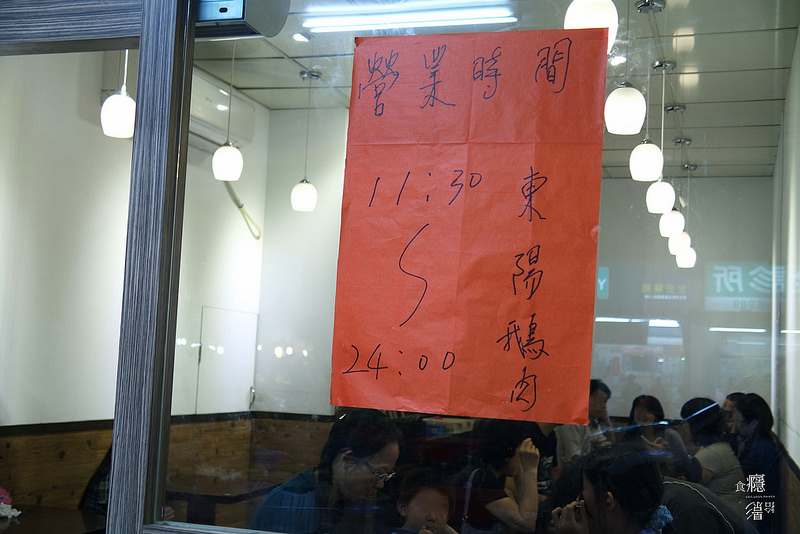 營業時間
11:30
~
24:00
東陽鵝肉
診所
食癮